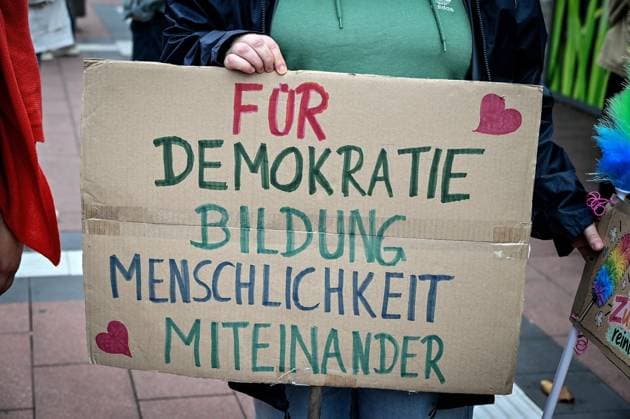 adidas
FÜR
DEMOKRATIE
BILDUNG
MENSCHLICHKEIT
MITEINANDER